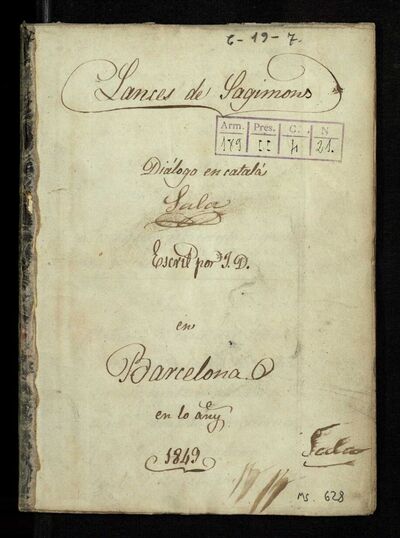 6-19-7.
Lances de Sagimons
Arm. Pres. C. N
179 II 4 21.
Diálogo en catalá
Sala
Escrit por J. D.
en
Barcelona
en lo añy
1849
Sala
Ms. 628